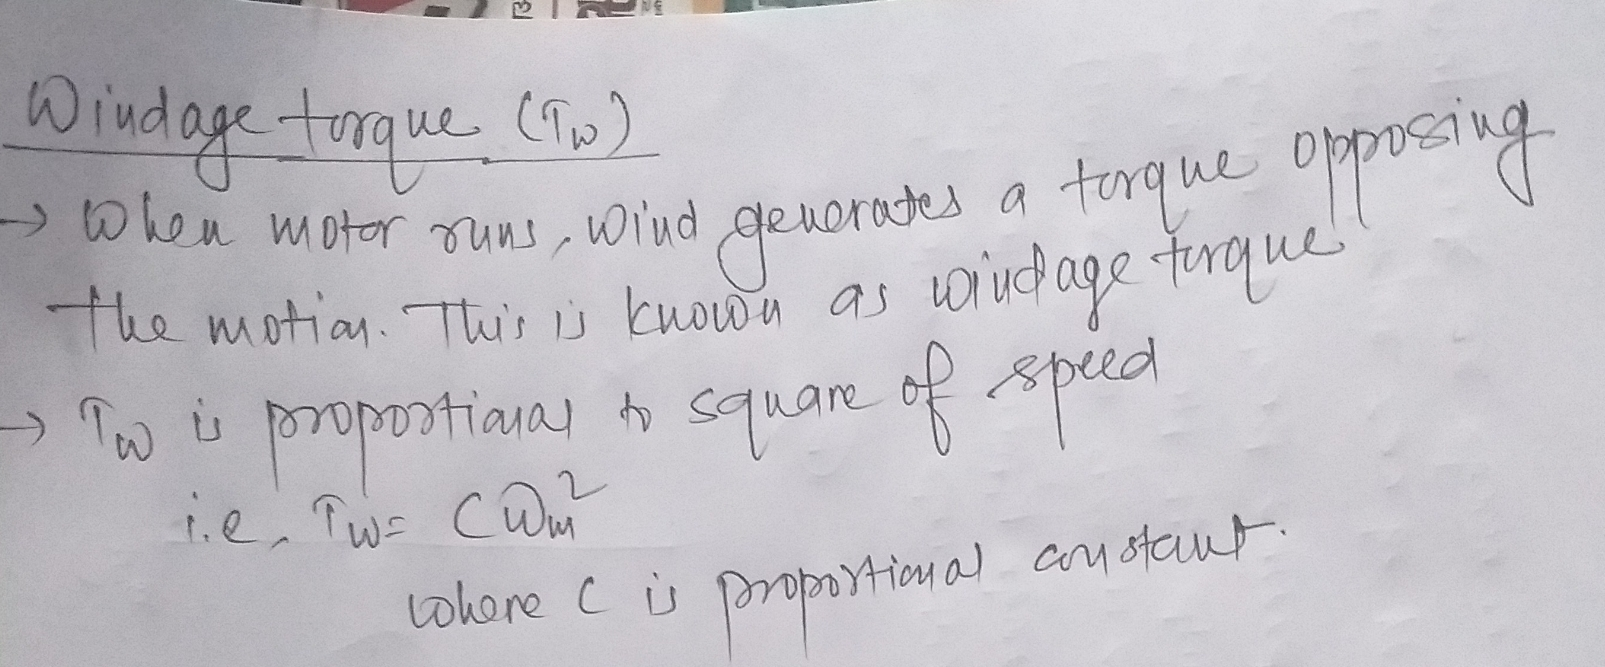 Windage torque (Tw)
→ When motor runs, wind generates a torque opposing
the motion. This is known as windage torque
→ Tw is proportional to square of speed
i.e, Tw = Cωm²
where C is proportional constant.